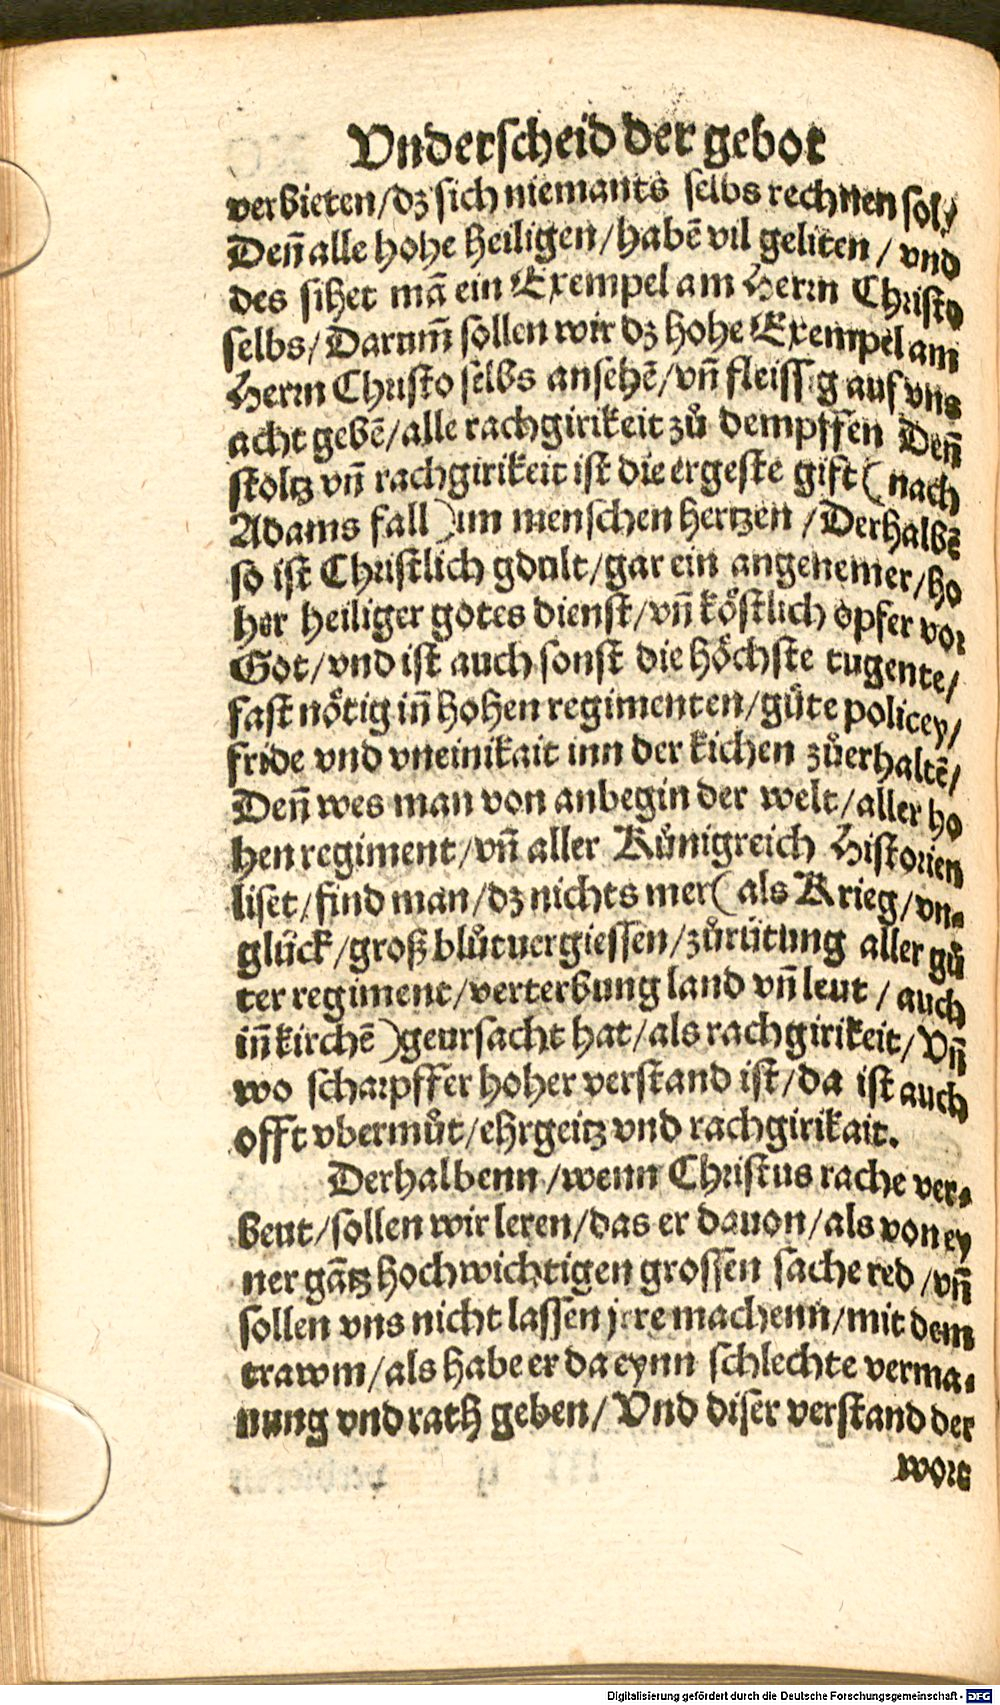 Vnderscheid der gebot
verbieten/dz sich niemants selbs rechnen sol/
Deñ alle hohe Heiligen/habē vil geliten/vnd
des sihet mā ein Exempel am Herrn Christo
selbs/Darum̃ sollen wir dz hohe Exempel am
Herrn Christo selbs ansehē/vñ fleissig auf vns
acht gebē/alle rachgirikeit zů dempffen Deñ
stoltz vñ rachgirikeit ist die ergeste gift (nach
Adams fall) im menschen hertzen/Derhalbē
so ist Christlich gdult/gar ein angenemer/ho
her heiliger gotes dienst/vñ köstlich opfer vor
Got/vnd ist auch sonst die höchste tugente/
fast nötig iñ hohen regimenten/gůte policey/
fride vnd vneinikait inn der kichen zůerhaltē/
Deñ wes man von anbegin der welt/aller ho
hen regiment/vñ aller Kůnigreich Historien
liset/find man/dz nichts mer (als Krieg/vn⸗
glück/groß blůtuergiessen/zůrütung aller gů
ter regiment/verterbung land vñ leut/auch
iñ kirchē) geursacht hat/als rachgirikeit/Vñ
wo scharpffer hoher verstand ist/da ist auch
offt vbermůt/ehrgeitz vnd rachgirikait.
Derhalbenn/wenn Christus rache ver⸗
beut/sollen wir leren/das er dauon/als von ey
ner gātz hochwichtigen grossen sache red/vñ
sollen vns nicht lassen jrre machenn/mit dem
trawm/als habe er da eynn schlechte verma⸗
nung vnd rath geben/Vnd diser verstand der
wort
Digitalisierung gefördert durch die Deutsche Forschungsgemeinschaft - DFG